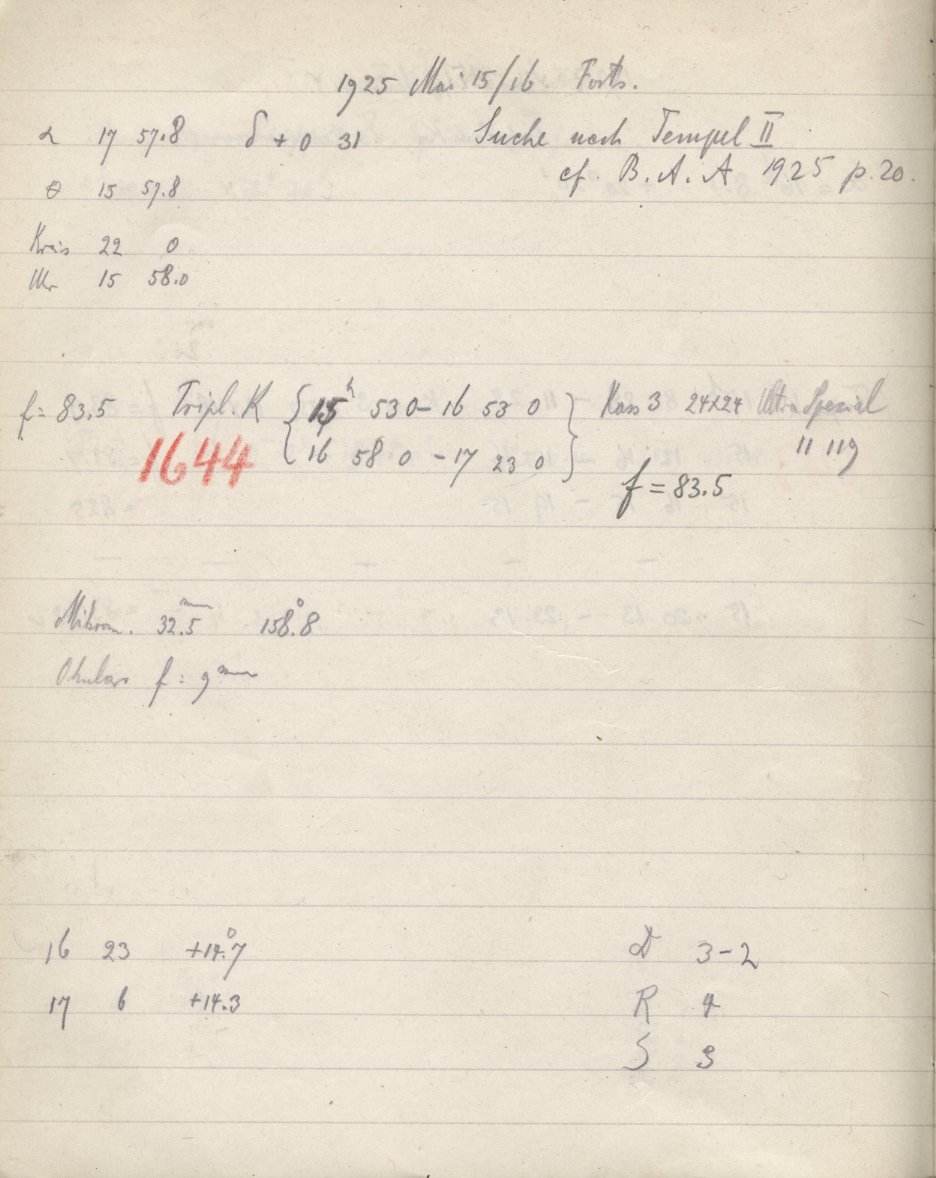 1925 Mai 15/16 Forts.
α 17 57.8 δ + 0 31 Suche nach Tempel II
cf B. A. A 1925 p. 20.
θ 15 57.8
Kreis 22 0
Uhr 15 58.0
f = 83.5 Tripl. K { 15h 53 0 – 16 53 0 } Kass 3 24x24 Ultra Spezial
1644 { 16 58 0 – 17 23 0 } 11 119
f = 83.5
Mikrom. 32.5mm 158.8°
Okular f = 9mm
16 23 +14.7° D 3-2
17 6 +14.3 R 4
S 3